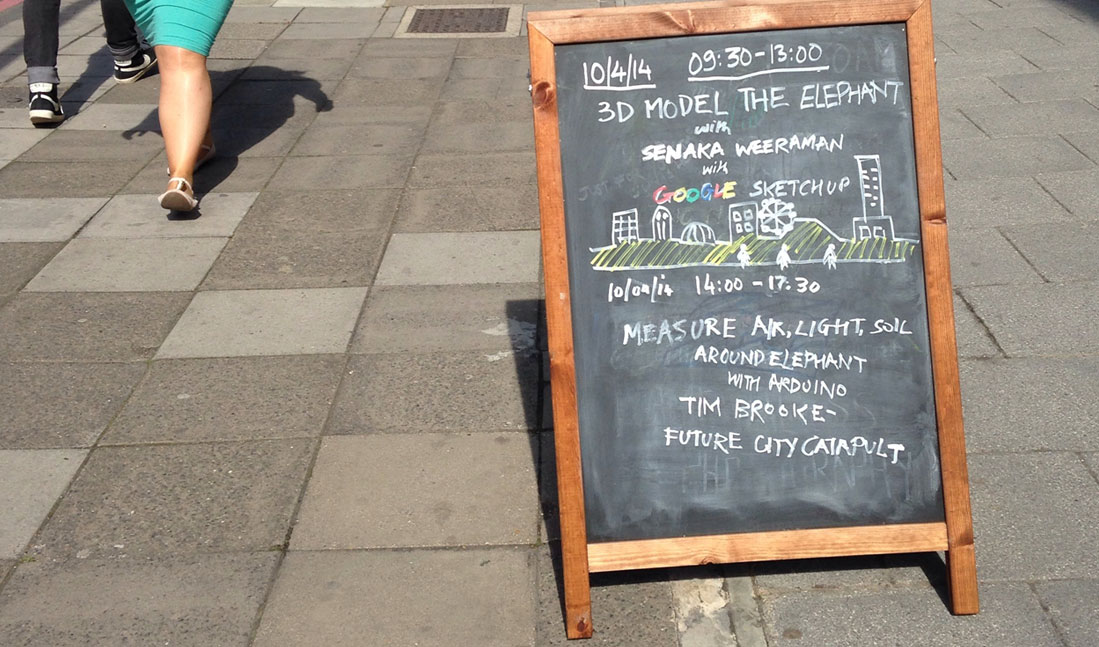 10/4/14 09:30-13:00
3D MODEL THE ELEPHANT
with
SENAKA WEERAMAN
with
GOOGLE SKETCHUP
10/04/14 14:00 - 17:30
MEASURE AIR, LIGHT, SOIL
AROUND ELEPHANT
WITH ARDUINO
TIM BROOKE-
FUTURE CITY CATAPULT